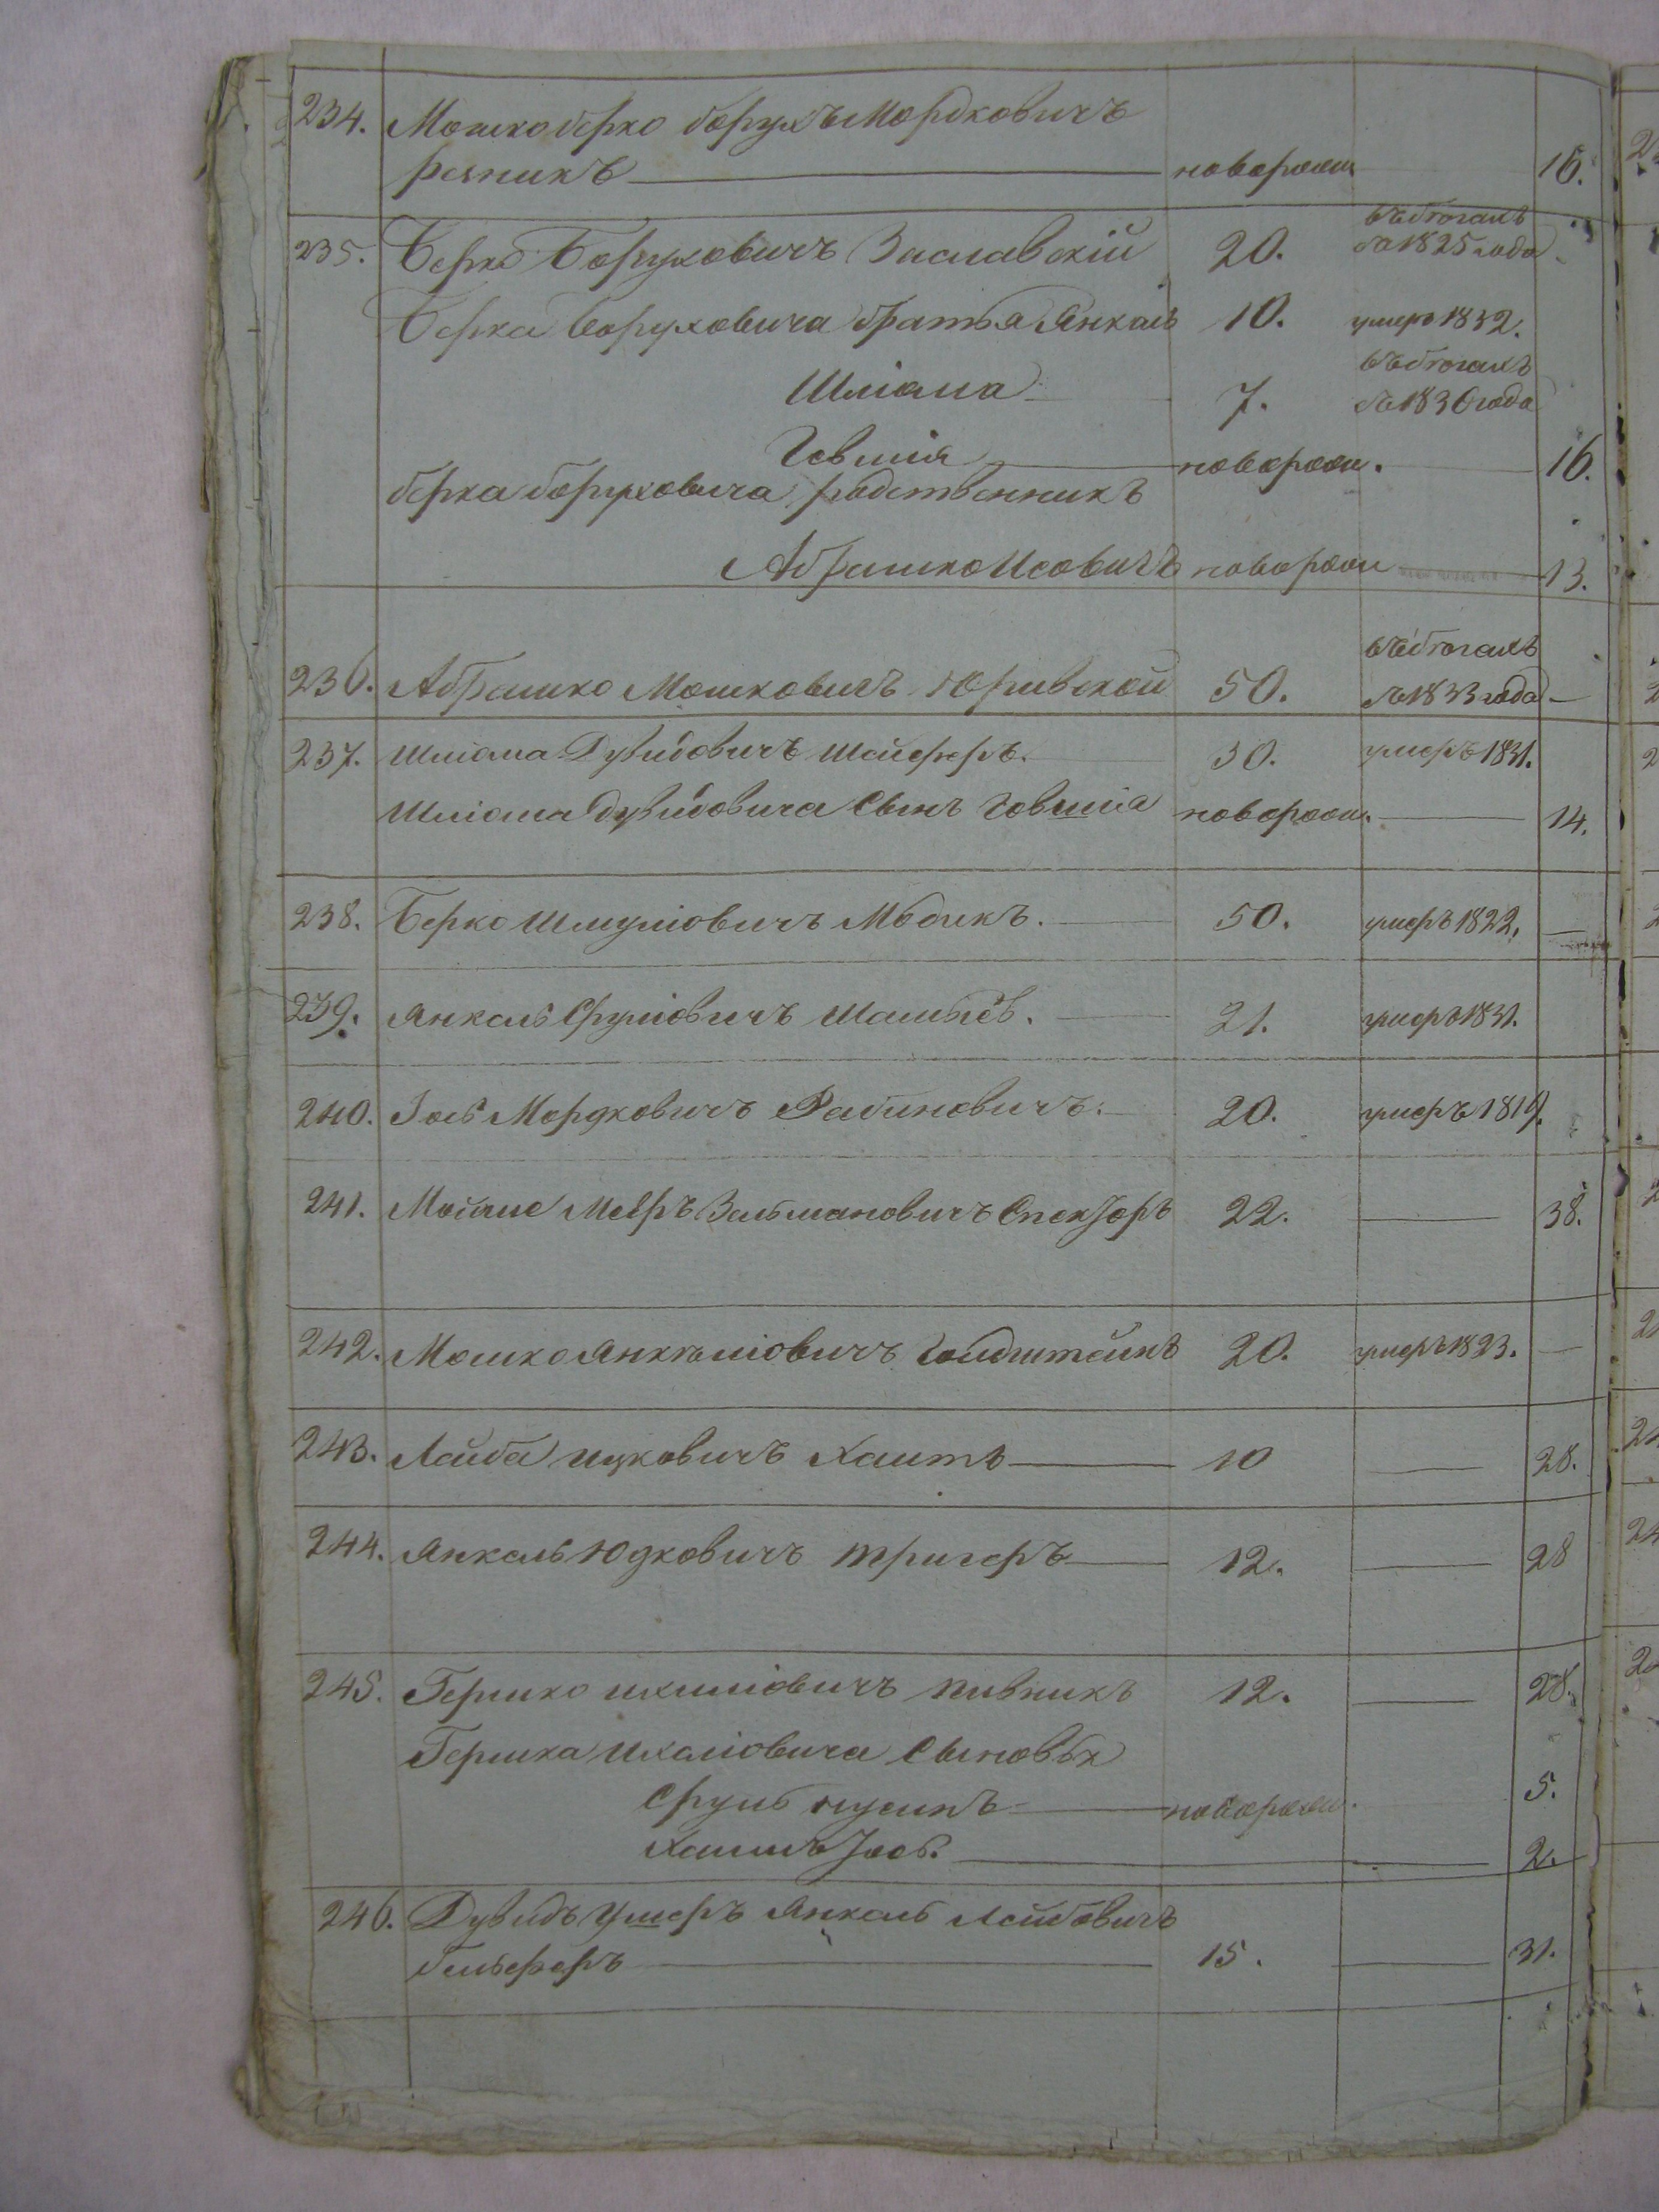 234. Мошко берко борухъ Мордковичъ
резникъ новорожд. 16.
235. Берко Боруховичъ Заславскій 20. въ бѣгахъ съ 1825 года
Берка Боруховича братья Янкель 10. умеръ 1832.
Шліома 7. въ бѣгахъ съ 1830 года
Говшія новорожд. 16.
берка боруховича родственникъ
Абрашко Исовичъ новорожд 13.
236. Абрашко Мошковичъ Юривской 50. въ бѣгахъ съ 1833 года
237. Шліома Дувидовичъ Шайферъ. 30. умеръ 1831.
Шліома Дувидовича Сынъ Говшія новорожд. 14.
238. Берко Шмуліовичъ Мѣдикъ. 50. умеръ 1822.
239. Янкель Сруліовичъ 21. умеръ 1831.
240. Іось Мордковичъ Рабиновичъ. 20. умеръ 1819.
241. Мойше Меєръ Зельмановичъ Спекторъ 22. 38.
242. Мошко Янкеліовичъ Гольдштейнъ 20. умеръ 1823.
243. Лейба Ицковичъ Хаитъ 10 28.
244. Янкель Юдковичъ Тригеръ 12. 28
245. Гершко Ихиліовичъ Пивникъ 12. 28.
Гершка Ихеліовича Сыновья
Сруль нусинъ новорожд. 5.
Хаимъ Іось. 2.
246. Дувидъ Ушеръ Янкель Лейбовичъ
бельферъ 15. 31.